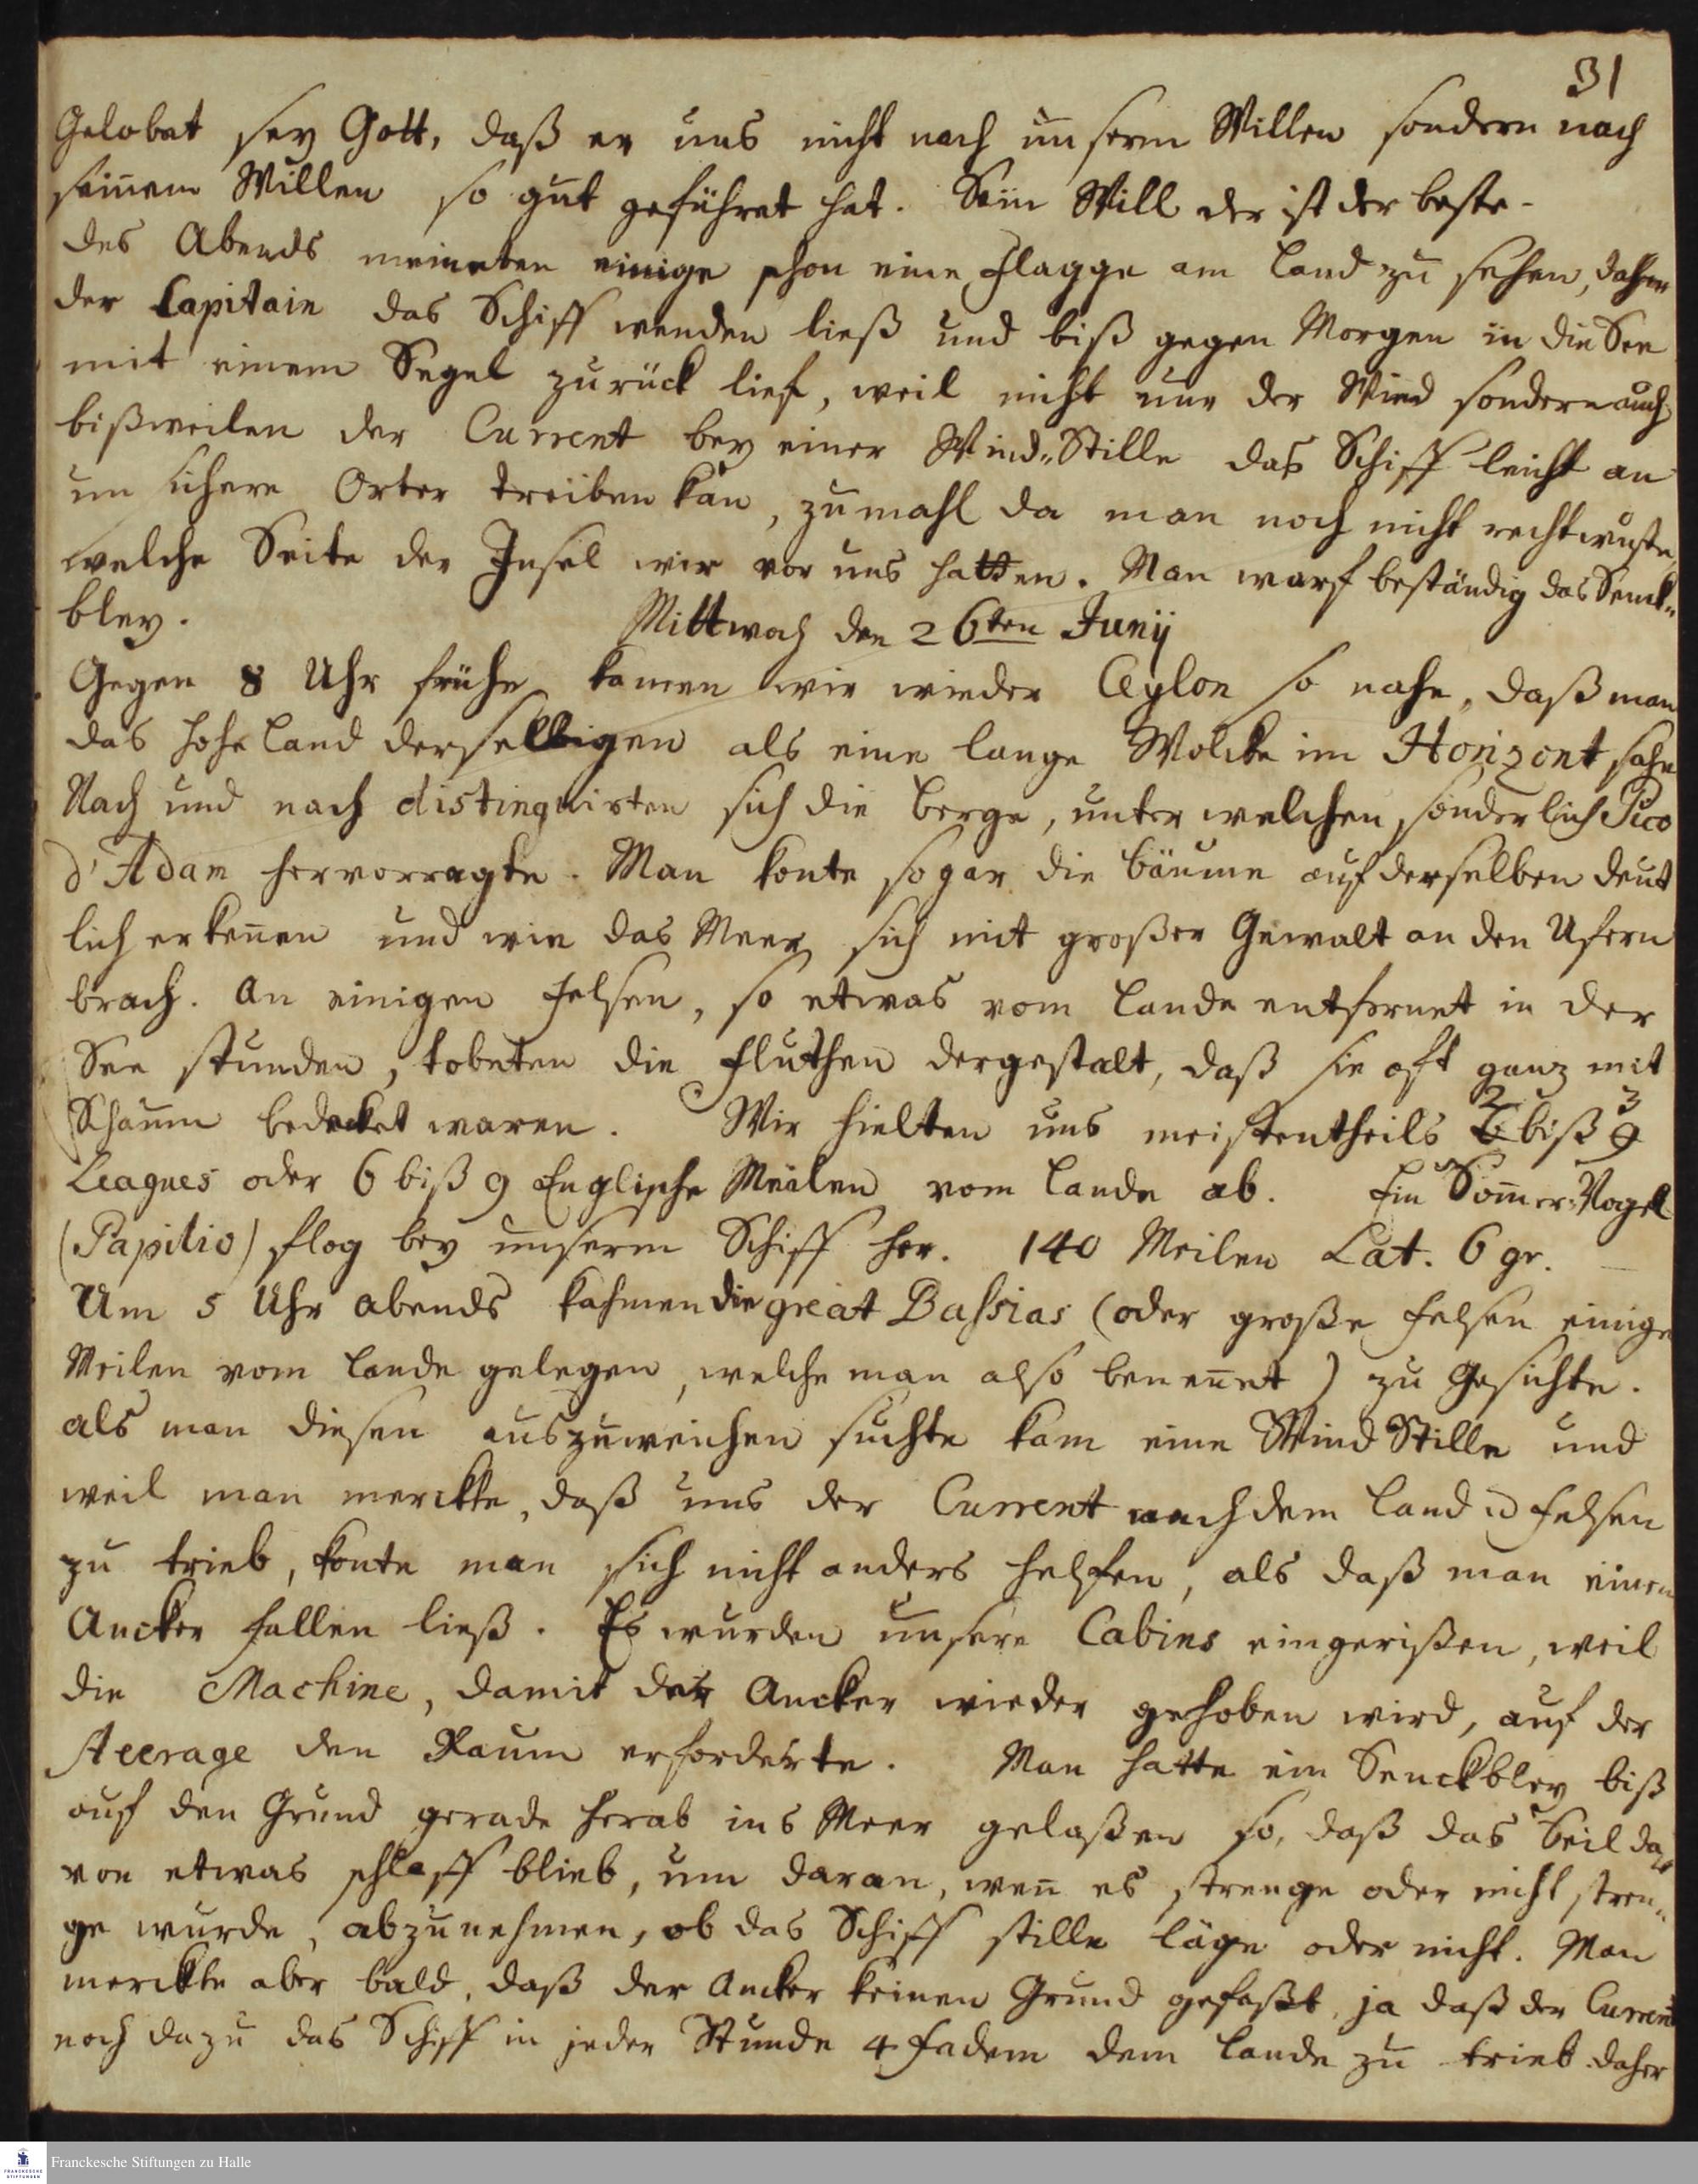 31
Gelobet sey Gott, daß er uns nicht nach unserm Willen sondern nach
seinem Willen so gut geführet hat. Sein Will der ist der beste.
des Abends meineten einige schon eine Flagge am Land zu sehen, daher
der Capitain das Schiff wenden ließ und biß gegen Morgen in die See
mit einem Segel zurück lief, weil nicht nur der Wind sondern auch
bißweilen der Current bey einer Wind-Stille das Schiff leicht an
un sichere Orter treiben kan, zumahl da man noch nicht recht wuste,
welche Seite der Insel wir vor uns hatten. Man warf beständig das Senck-
bley.
Mittwoch den 26ten Junij
Gegen 8 Uhr frühe kamen wir wieder Ceylon so nahe, daß man
das hohe Land derselbigen als eine lange Wolcke im Horizont sahe
Nach und nach distinguirten sich die Berge, unter welchen sonderlich Pico
d'Adam hervorragte. Man konte sogar die Bäume auf derselben deut
lich erkeñen und wie das Meer sich mit großer Gewalt an den Ufern
brach. An einigen Felsen, so etwas vom Lande entfernet in der
See stunden, tobeten die Fluthen dergestalt, daß sie oft ganz mit
Schaum bedecket waren. Wir hielten uns meistentheils 2 biß 3
Leagues oder 6 biß 9 Englische Meilen vom Lande ab. Ein Som̃er-Vogel
(Papilio) flog bey unserm Schiff her. 140 Meilen Lat. 6 gr.
Um 5 Uhr abends kahmen die great Bassias (oder große Felsen einige
Meilen vom Lande gelegen, welche man also beneñet) zu Gesichte.
als man diesen auszuweichen suchte kam eine Wind Stille und
weil man merckte, daß uns der Current nach dem Land u Felsen
zu trieb, konte man sich nicht anders helfen, als daß man einen
Ancker fallen ließ. Es wurden unsere Cabins eingerißen, weil
die Machine, damit der Ancker wieder gehoben wird, auf der
steerage den Raum erforderte. Man hatte ein Senckbley biß
auf den Grund gerade herab ins Meer gelaßen so, daß das Seil da-
von etwas schlaff blieb, um daran, weñ es strenge oder nicht stren-
ge wurde, abzunehmen, ob das Schiff stille läge oder nicht. Man
merckte aber bald, daß der Ancker keinen Grund gefaßt, ja daß der Current
noch dazu das Schiff in jeder Stunde 4 Fadem dem Lande zu trieb. daher
Franckesche Stiftungen zu Halle
FRANCKESCHE
STIFTUNGEN